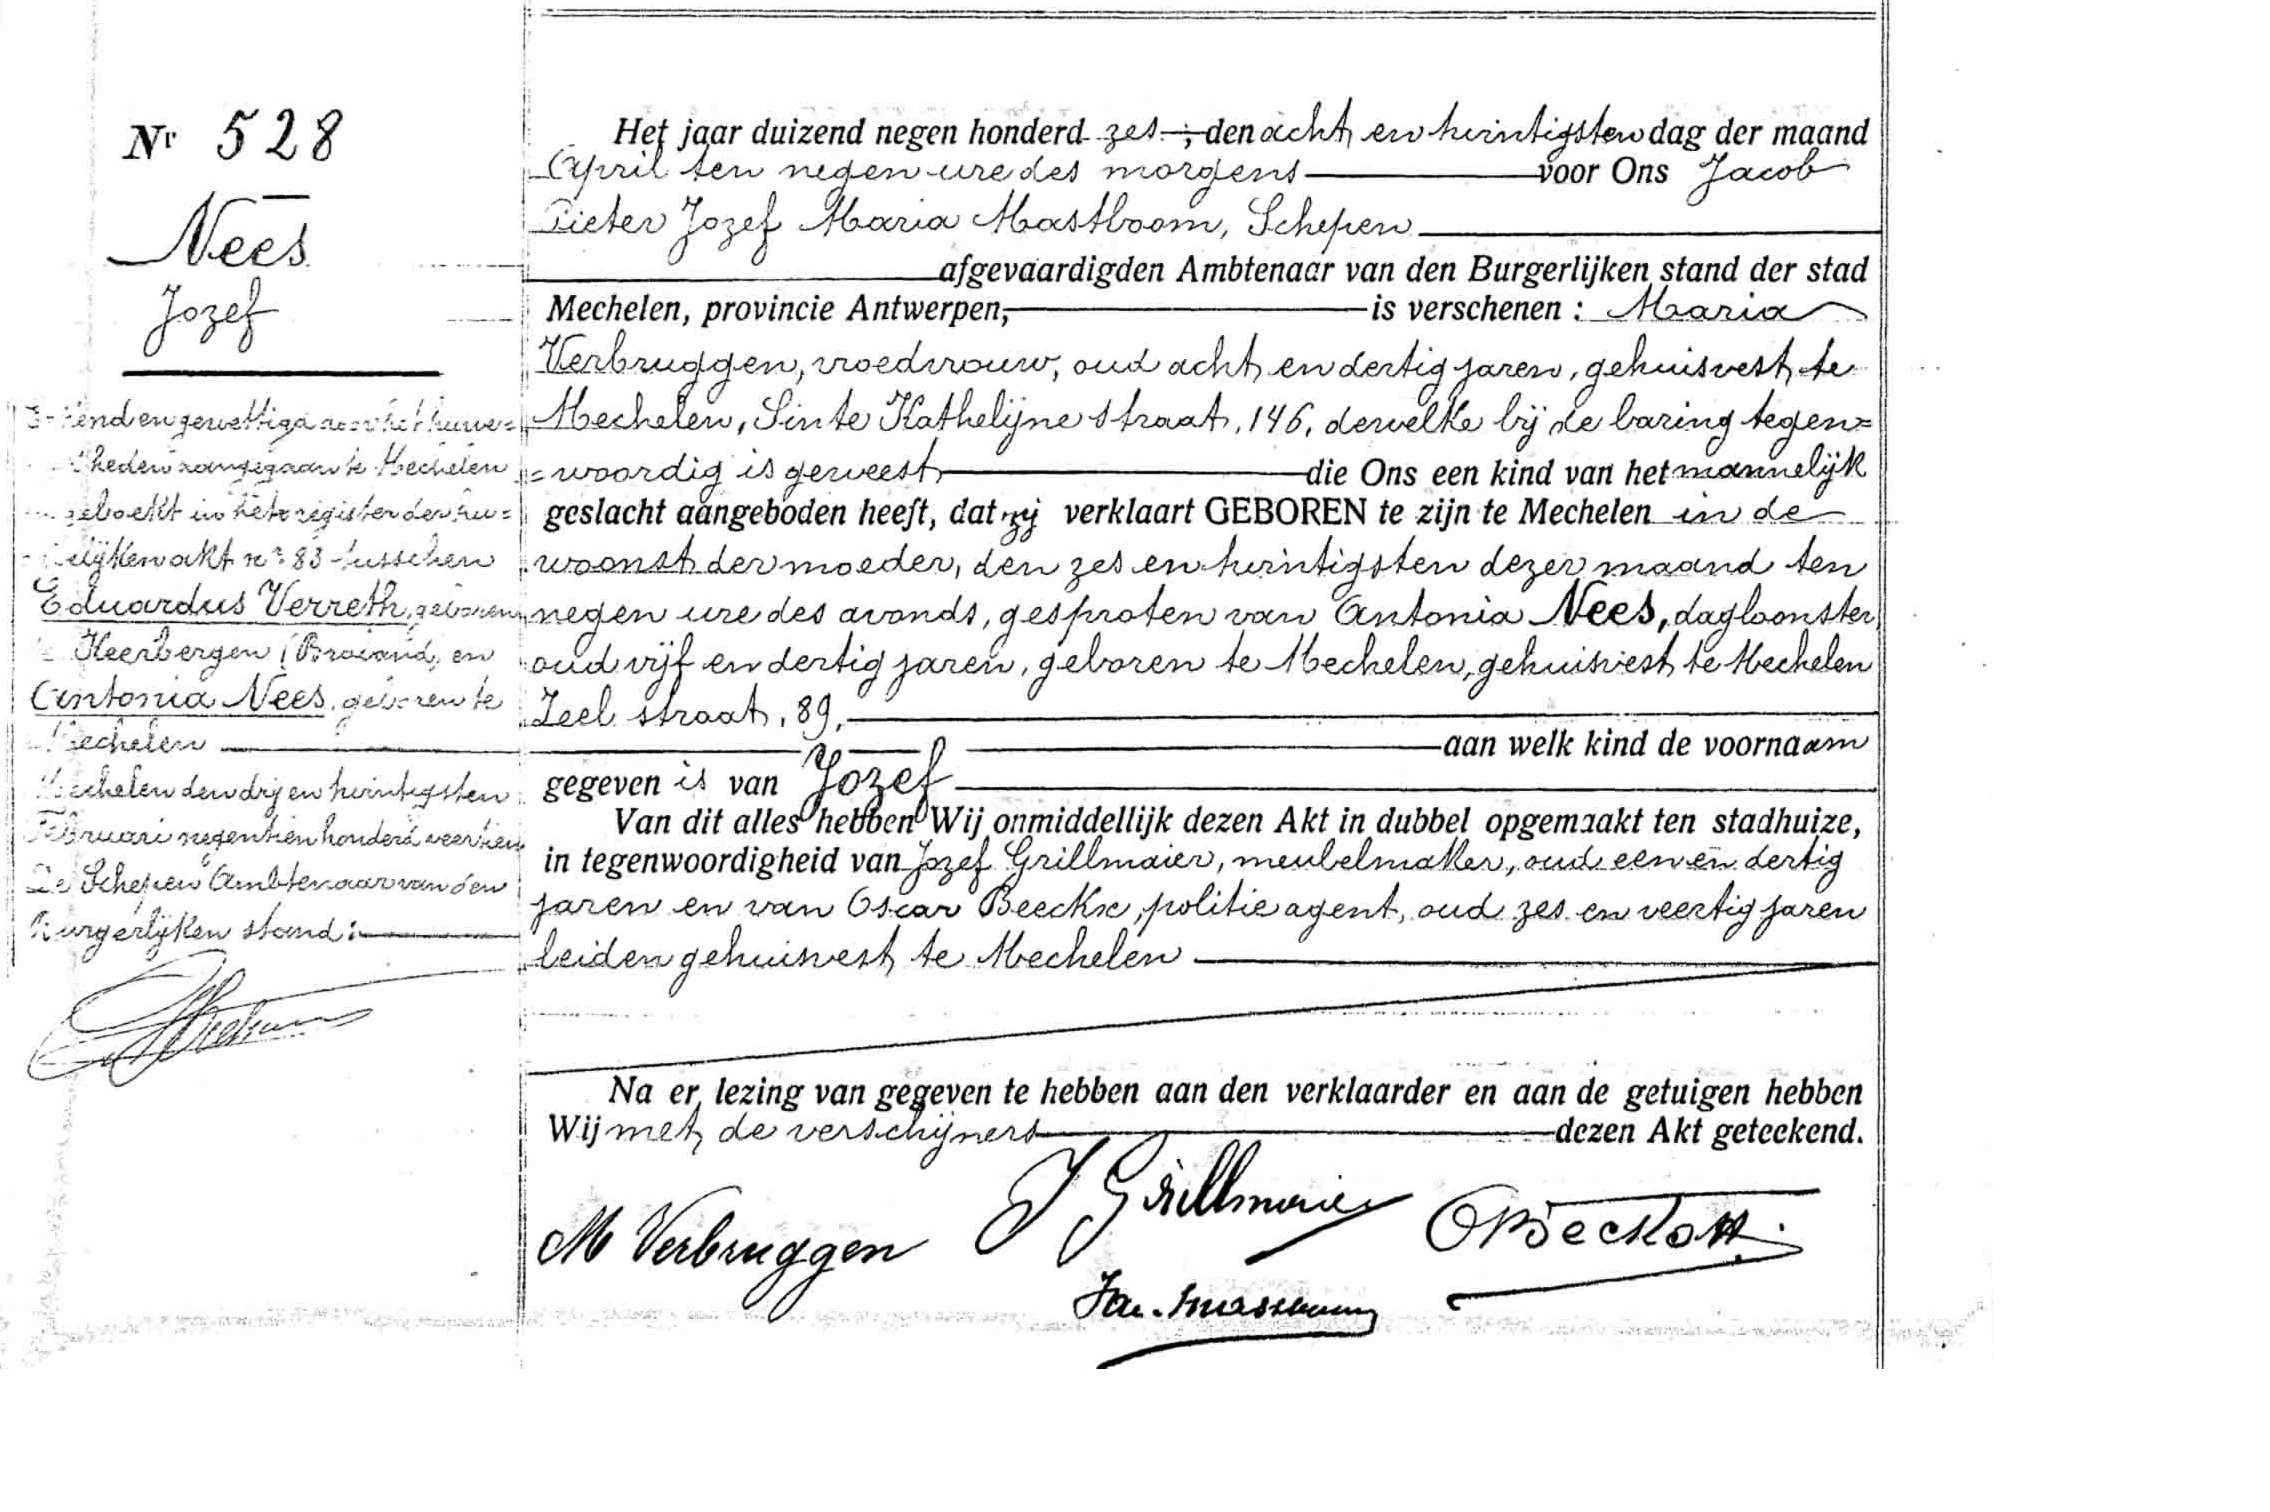 Nr 528
Nees
Jozef
Het jaar duizend negen honderd zes ; den acht en twintigsten dag der maand
April ten negen ure des morgens voor Ons Jacob
Pieter Jozef Maria Mastboom, Schepen
afgevaardigden Ambtenaar van den Burgerlijken stand der stad
Mechelen, provincie Antwerpen, is verschenen : Maria
Verbruggen, vroedvrouw, oud acht en dertig jaren, gehuisvest te
Mechelen, Sinte Kathelijne straat, 146, dewelke bij de baring tegen=
=woordig is geweest die Ons een kind van het mannelijk
geslacht aangeboden heeft, dat zij verklaart GEBOREN te zijn te Mechelen in de
woonst der moeder, den zes en twintigsten dezer maand ten
negen ure des avonds, gesproten van Antonia Nees, dagloonster,
oud vijf en dertig jaren, geboren te Mechelen, gehuisvest te Mechelen
Zeel straat, 89,
aan welk kind de voornaam
gegeven is van Jozef
Van dit alles hebben Wij onmiddellijk dezen Akt in dubbel opgemaakt ten stadhuize,
in tegenwoordigheid van Jozef Grillmaier, meubelmaker, oud een en dertig
jaren en van Oscar Beeckx, politie agent, oud zes en veertig jaren
beiden gehuisvest te Mechelen
Na er lezing van gegeven te hebben aan den verklaarder en aan de getuigen hebben
Wij met de verschijners dezen Akt geteekend.
M Verbruggen
J Grillmaier
en gewettigd het huwe=
heden aangegaan te Mechelen
geboekt in het register der hu=
akt nr 83 tusschen
Eduardus Verreth, geboren
Keerbergen (Braband) en
Antonia Nees, geboren te
Mechelen
Mechelen den drij en twintigsten
Februari negentien honderd veertien
De Schepen Ambtenaar van den
Burgerlijken stand: